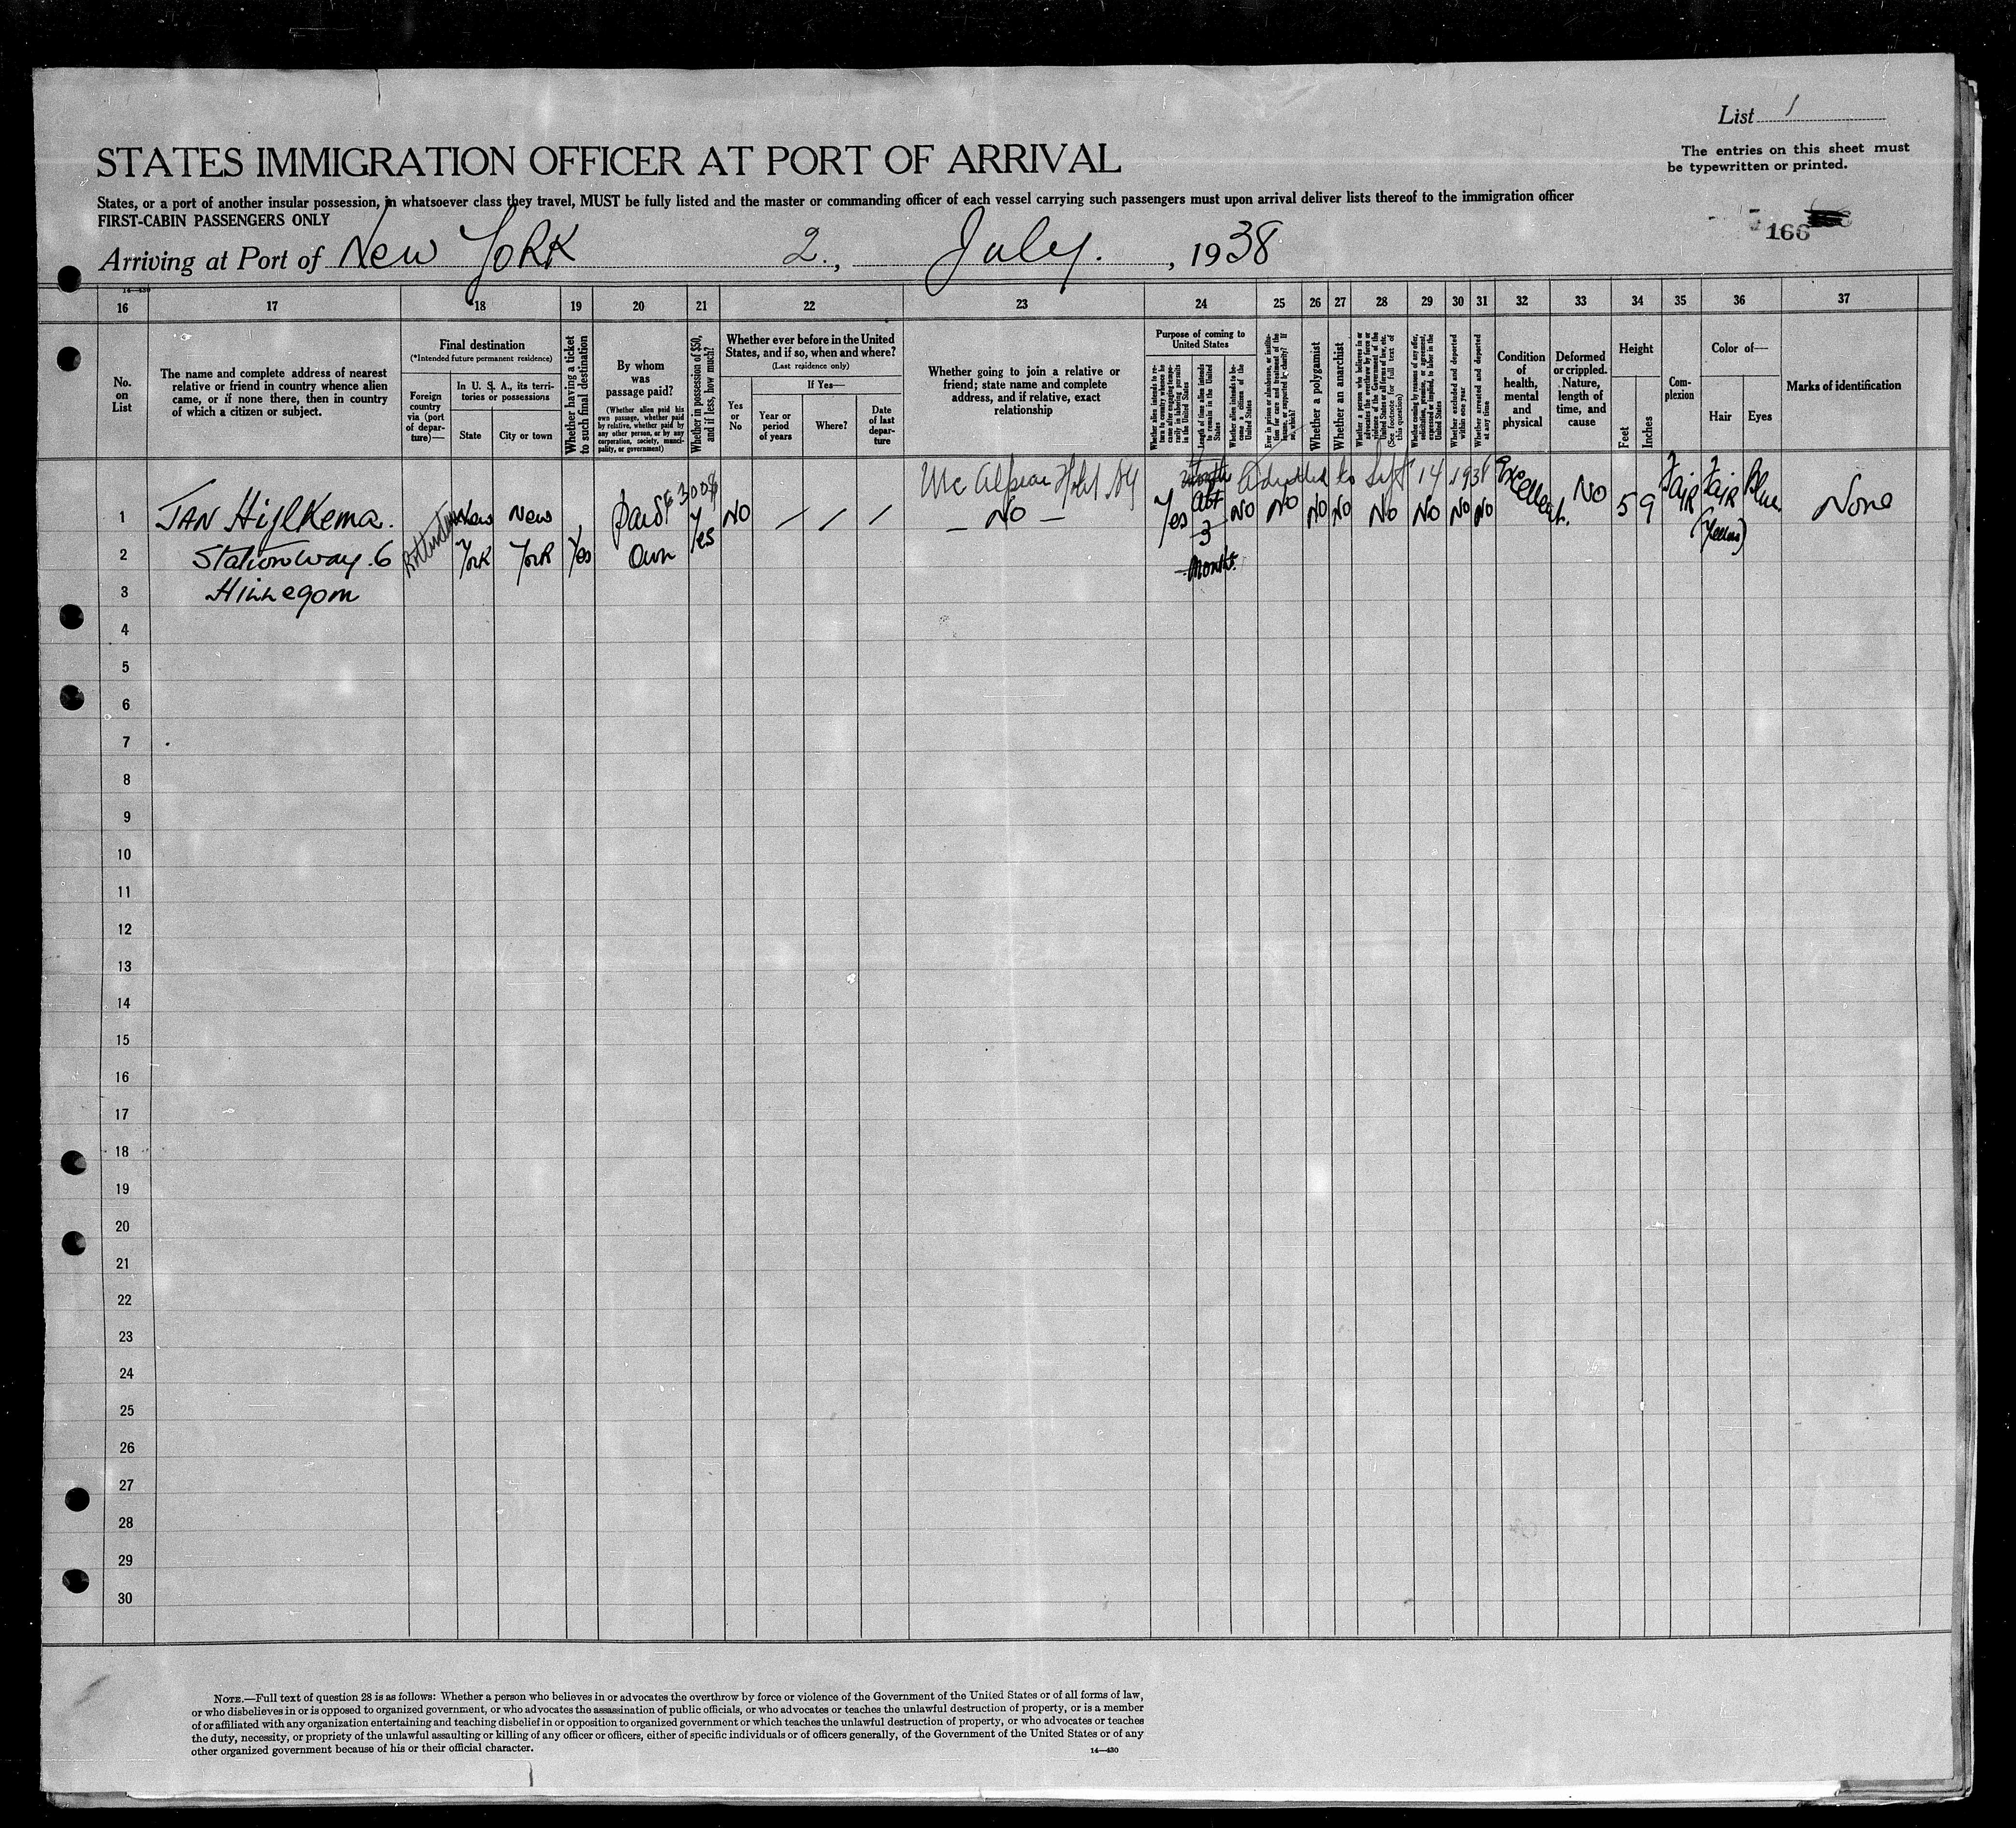 List 1
STATES IMMIGRATION OFFICER AT PORT OF ARRIVAL
The entries on this sheet must
be typewritten or printed.
States, or a port of another insular possession, in whatsoever class they travel, MUST be fully listed and the master or commanding officer of each vessel carrying such passengers must upon arrival deliver lists thereof to the immigration officer
FIRST-CABIN PASSENGERS ONLY
166
Arriving at Port of New York 2., July. , 1938
14—430
16 17 18 19 20 21 22 23 24 25 26 27 28 29 30 31 32 33 34 35 36 37
No.
on
List
The name and complete address of nearest
relative or friend in country whence alien
came, or if none there, then in country
of which a citizen or subject.
Final destination
(*Intended future permanent residence)
Foreign
country
via (port
of depar-
ture)—
In U. S. A., its terri-
tories or possessions
State
City or town
Whether having a ticket
to such final destination
By whom
was
passage paid?
(Whether alien paid his
own passage, whether paid
by relative, whether paid by
any other person, or by any
corporation, society, munici-
pality, or government)
Whether in possession of $50,
and if less, how much?
Whether ever before in the United
States, and if so, when and where?
(Last residence only)
Yes
or
No
If Yes—
Year or
period
of years
Where?
Date
of last
depar-
ture
Whether going to join a relative or
friend; state name and complete
address, and if relative, exact
relationship
Purpose of coming to
United States
Whether alien intends to re-
turn to country whence he
came after engaging tempo-
rarily in laboring pursuits
in the United States
Length of time alien intends
to remain in the United
States
Whether alien intends to be-
come a citizen of the
United States
Ever in prison or almshouse, or institu-
tion for care and treatment of the
insane, or supported by charity? If
so, which?
Whether a polygamist
Whether an anarchist
Whether a person who believes in or
advocates the overthrow by force or
violence of the Government of the
United States or all forms of law, etc.
(See footnote for full text of
this question)
Whether coming by reason of any offer,
solicitation, promise, or agreement,
expressed or implied, to labor in the
United States
Whether excluded and deported
within one year
Whether arrested and deported
at any time
Condition
of
health,
mental
and
physical
Deformed
or crippled.
Nature,
length of
time, and
cause
Height
Feet
Inches
Com-
plexion
Color of—
Hair
Eyes
Marks of identification
Mc Alpin Hotel NY
Admitted to Sept 14 1938
1 JAN Hijlkema. Rotterdam New New Paid 300$ Yes NO / / / — No — Yes Abt NO NO NO NO NO NO NO NO Excellent. NO 5 9 Fair Fair Blue None
2 Stationway. 6 York York Yes Own 3
3 Hinnegom Months.
4
5
6
7
8
9
10
11
12
13
14
15
16
17
18
19
20
21
22
23
24
25
26
27
28
29
30
NOTE.—Full text of question 28 is as follows: Whether a person who believes in or advocates the overthrow by force or violence of the Government of the United States or of all forms of law,
or who disbelieves in or is opposed to organized government, or who advocates the assassination of public officials, or who advocates or teaches the unlawful destruction of property, or is a member
of or affiliated with any organization entertaining and teaching disbelief in or opposition to organized government or which teaches the unlawful destruction of property, or who advocates or teaches
the duty, necessity, or propriety of the unlawful assaulting or killing of any officer or officers, either of specific individuals or of officers generally, of the Government of the United States or of any
other organized government because of his or their official character.
14—430